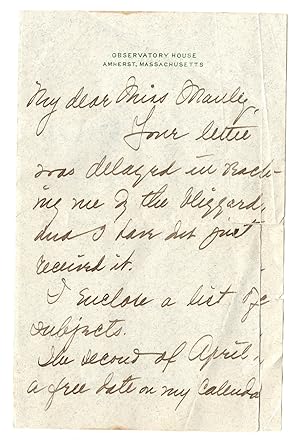 OBSERVATORY HOUSE
AMHERST, MASSACHUSETTS
My dear Miss Manley,
Your letter
was delayed in reach-
ing me by the blizzard,
and I have but just
received it.
I enclose a list of
subjects.
The second of April,
a free date on my Calenda